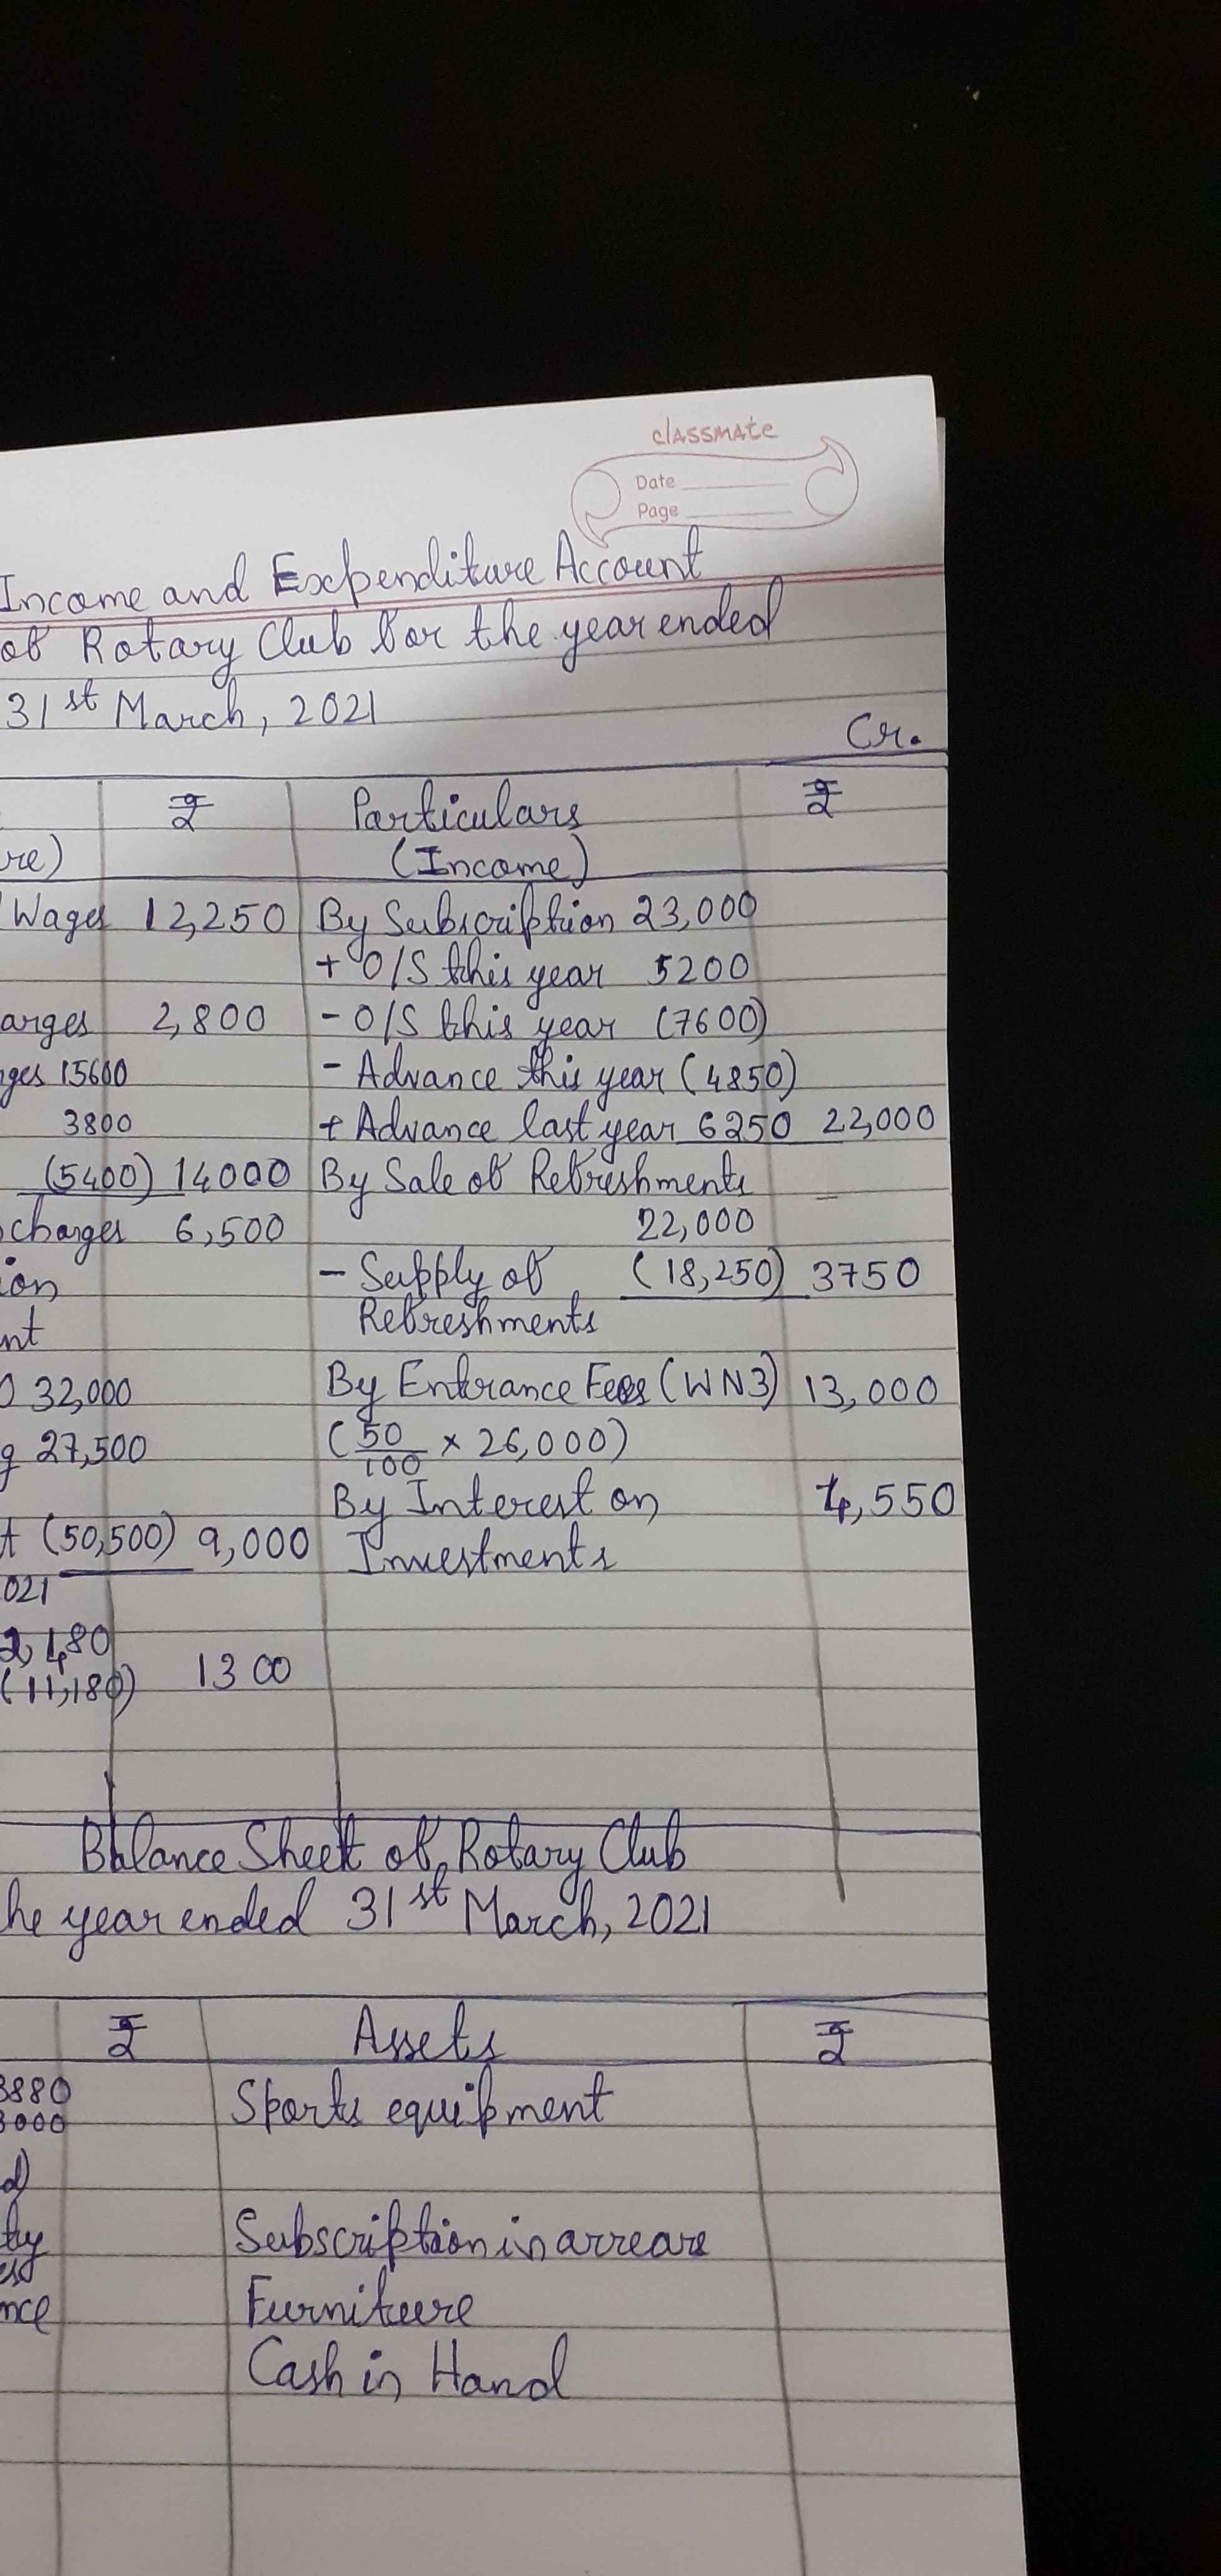 classmate
Date
Page
Income and Expenditure Account
of Rotary Club for the year ended
31st March, 2021
Cr.
₹ Particulars ₹
re) (Income)
Wages 12,250 By Subscription 23,000
+ O/S this year 5200
arges 2,800 - O/S this year (7600)
ges 15600 - Advance this year (4850)
3800 + Advance last year 6250 22,000
(5400) 14000 By Sale of Refreshments
charges 6,500 22,000
ion - Supply of (18,250) 3750
nt Refreshments
32,000 By Entrance Fees (WN3) 13,000
g 27,500 (50/100 × 26,000)
By Interest on 4,550
t (50,500) 9,000 Investments
021
2,480
(11,180) 1300
Balance Sheet of Rotary Club
he year ended 31st March, 2021
₹ Assets ₹
3880 Sports equipment
3000
d)
ty Subscription in arrears
nce Furniture
Cash in Hand